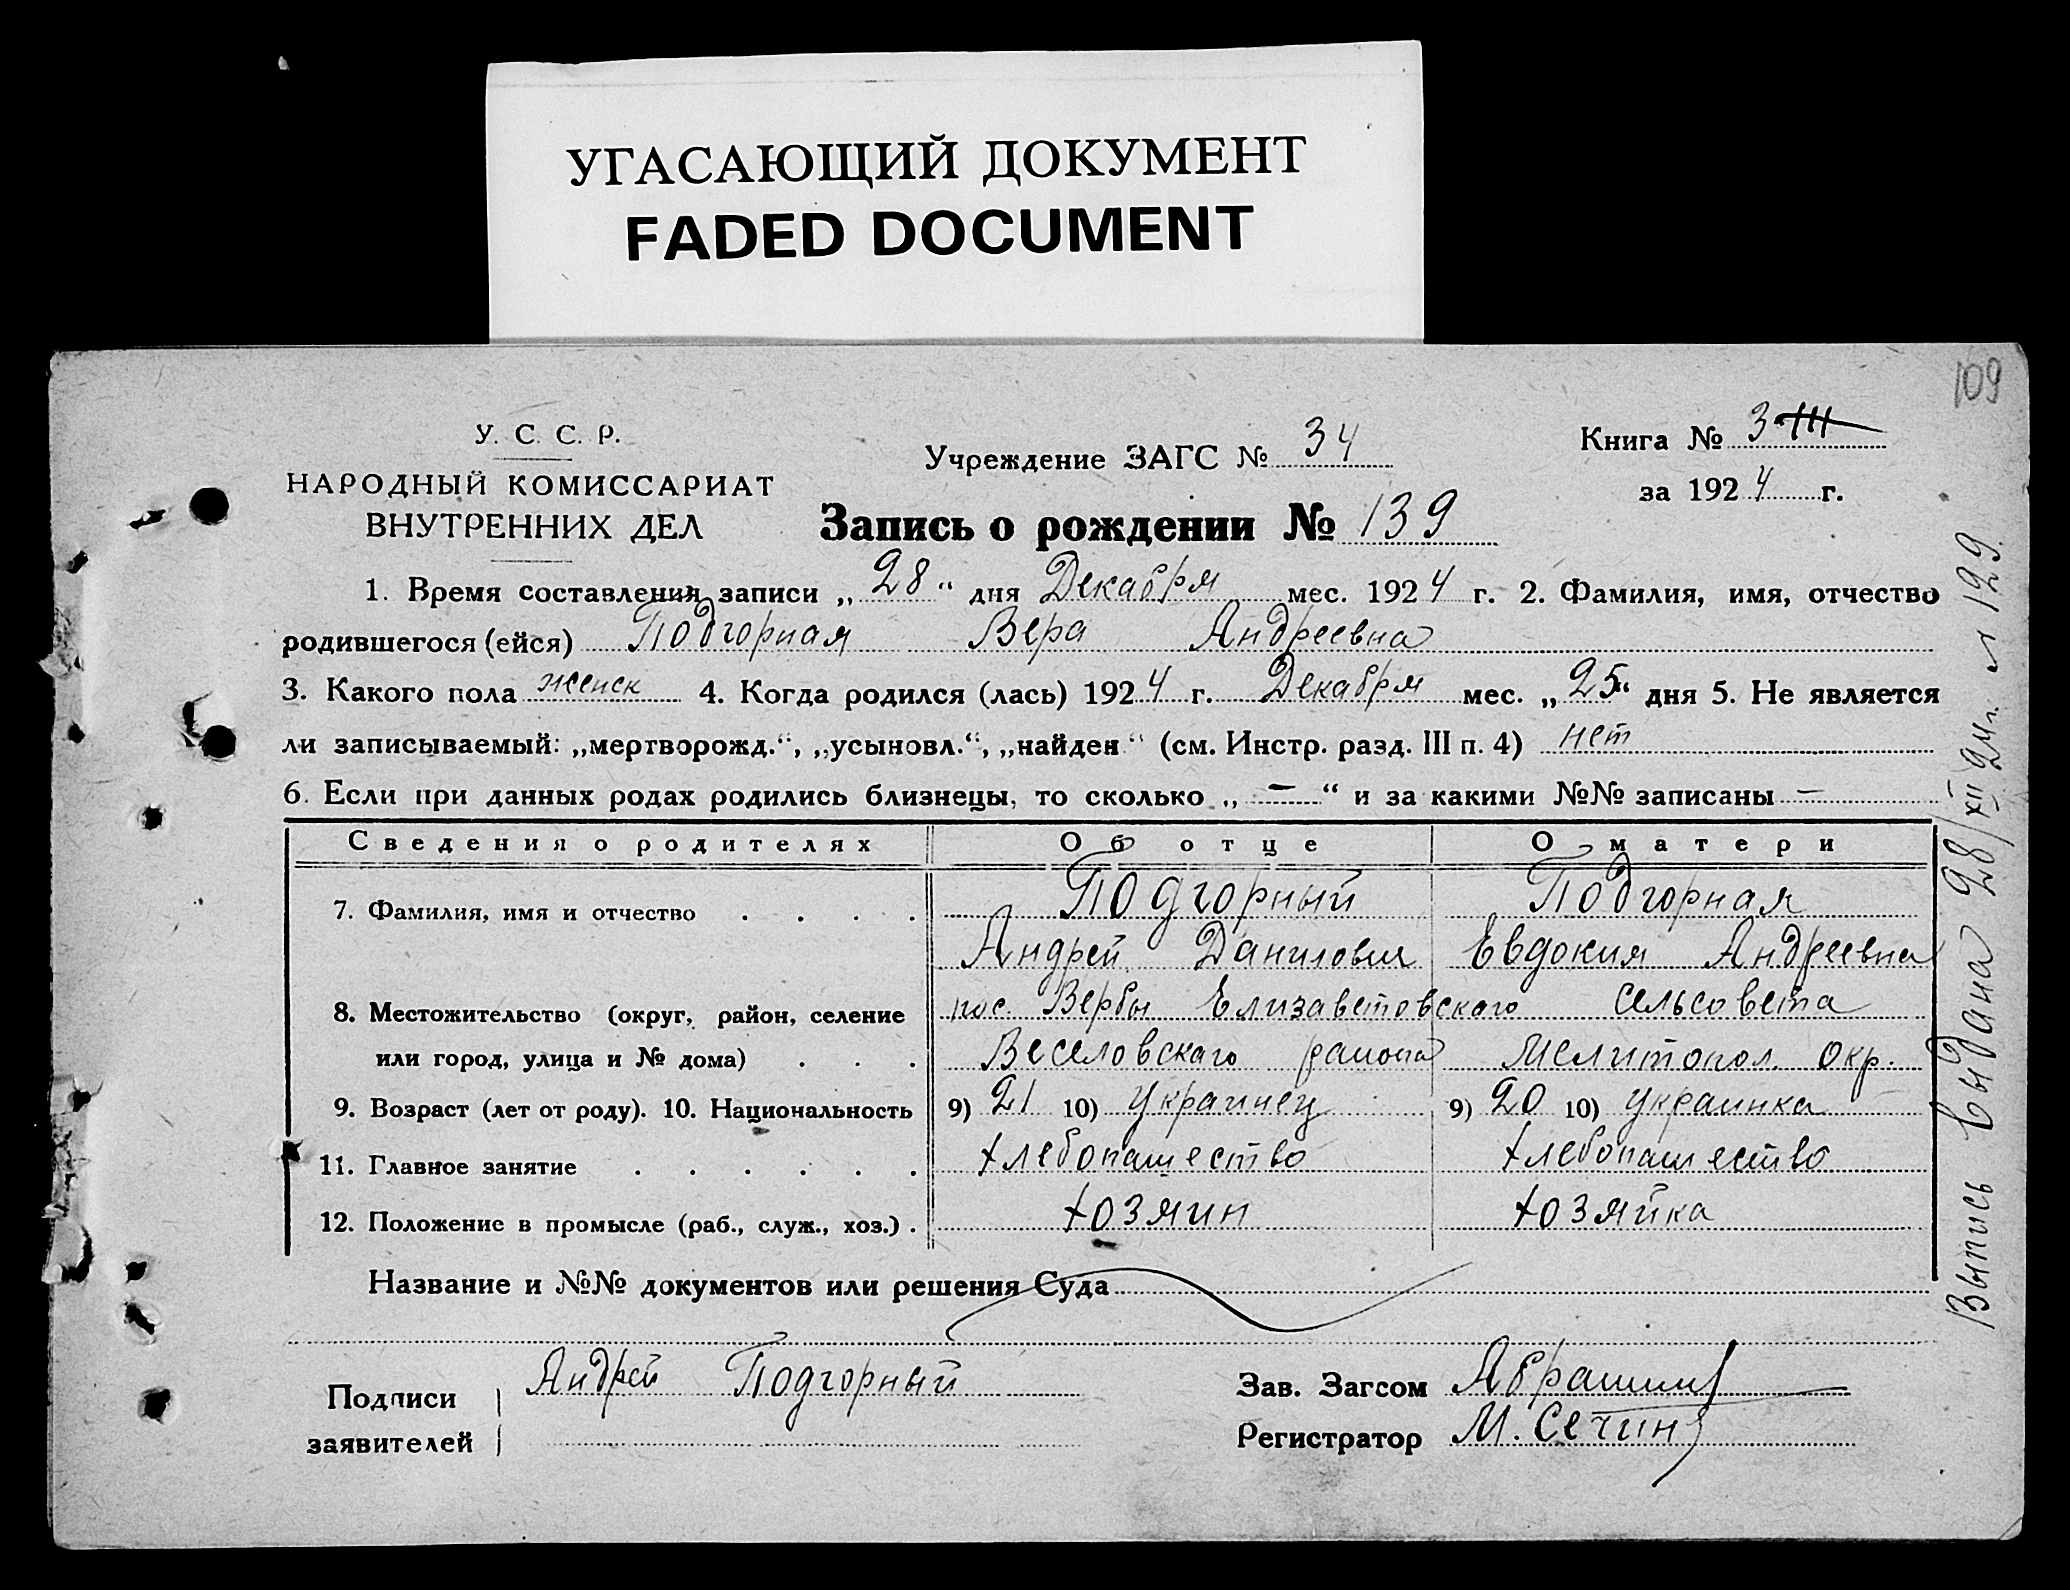 УГАСАЮЩИЙ ДОКУМЕНТ
FADED DOCUMENT
109
У. С. С. Р.
НАРОДНЫЙ КОМИССАРИАТ
ВНУТРЕННИХ ДЕЛ
Учреждение ЗАГС № 34
Книга № 3
за 1924 г.
Запись о рождении № 139
1. Время составления записи „28“ дня Декабря мес. 1924 г. 2. Фамилия, имя, отчество
родившегося (ейся) Подгорная Вера Андреевна
3. Какого пола женск 4. Когда родился (лась) 1924 г. Декабря мес. „25“ дня 5. Не является
ли записываемый: „мертворожд.“, „усыновл.“, „найден“ (см. Инстр. разд. III п. 4) нет
6. Если при данных родах родились близнецы, то сколько „—“ и за какими №№ записаны —
Сведения о родителях Об отце О матери
7. Фамилия, имя и отчество . . . . Подгорный Подгорная
Андрей Данилович Евдокия Андреевна
8. Местожительство (округ, район, селение пос. Вербы Елизаветовского сельсовета
или город, улица и № дома) . . . Веселовского района Мелитопол. окр.
9. Возраст (лет от роду). 10. Национальность 9) 21 10) Украинец 9) 20 10) Украинка
11. Главное занятие . . . . . . Хлебопашество Хлебопашество
12. Положение в промысле (раб., служ., хоз.) . Хозяин Хозяйка
Название и №№ документов или решения Суда
Подписи
заявителей
Андрей Подгорный
Зав. Загсом
Регистратор М. Сечин
Выпись выдана 28/XII 24 г. № 129